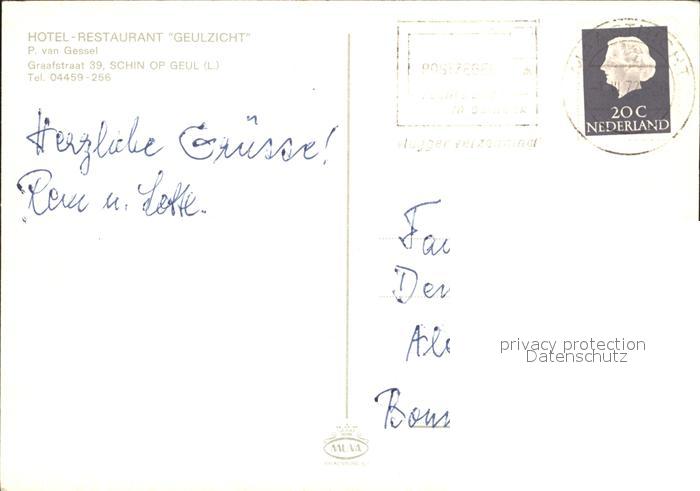 HOTEL-RESTAURANT "GEULZICHT"
P. van Gessel
Graafstraat 39, SCHIN OP GEUL (L.)
Tel. 04459-256
Herzliche Grüsse!
u. Lotte.
POSTZEGEL
20 C
NEDERLAND
Fa
De
Bonn
privacy protection
Datenschutz
MUVA